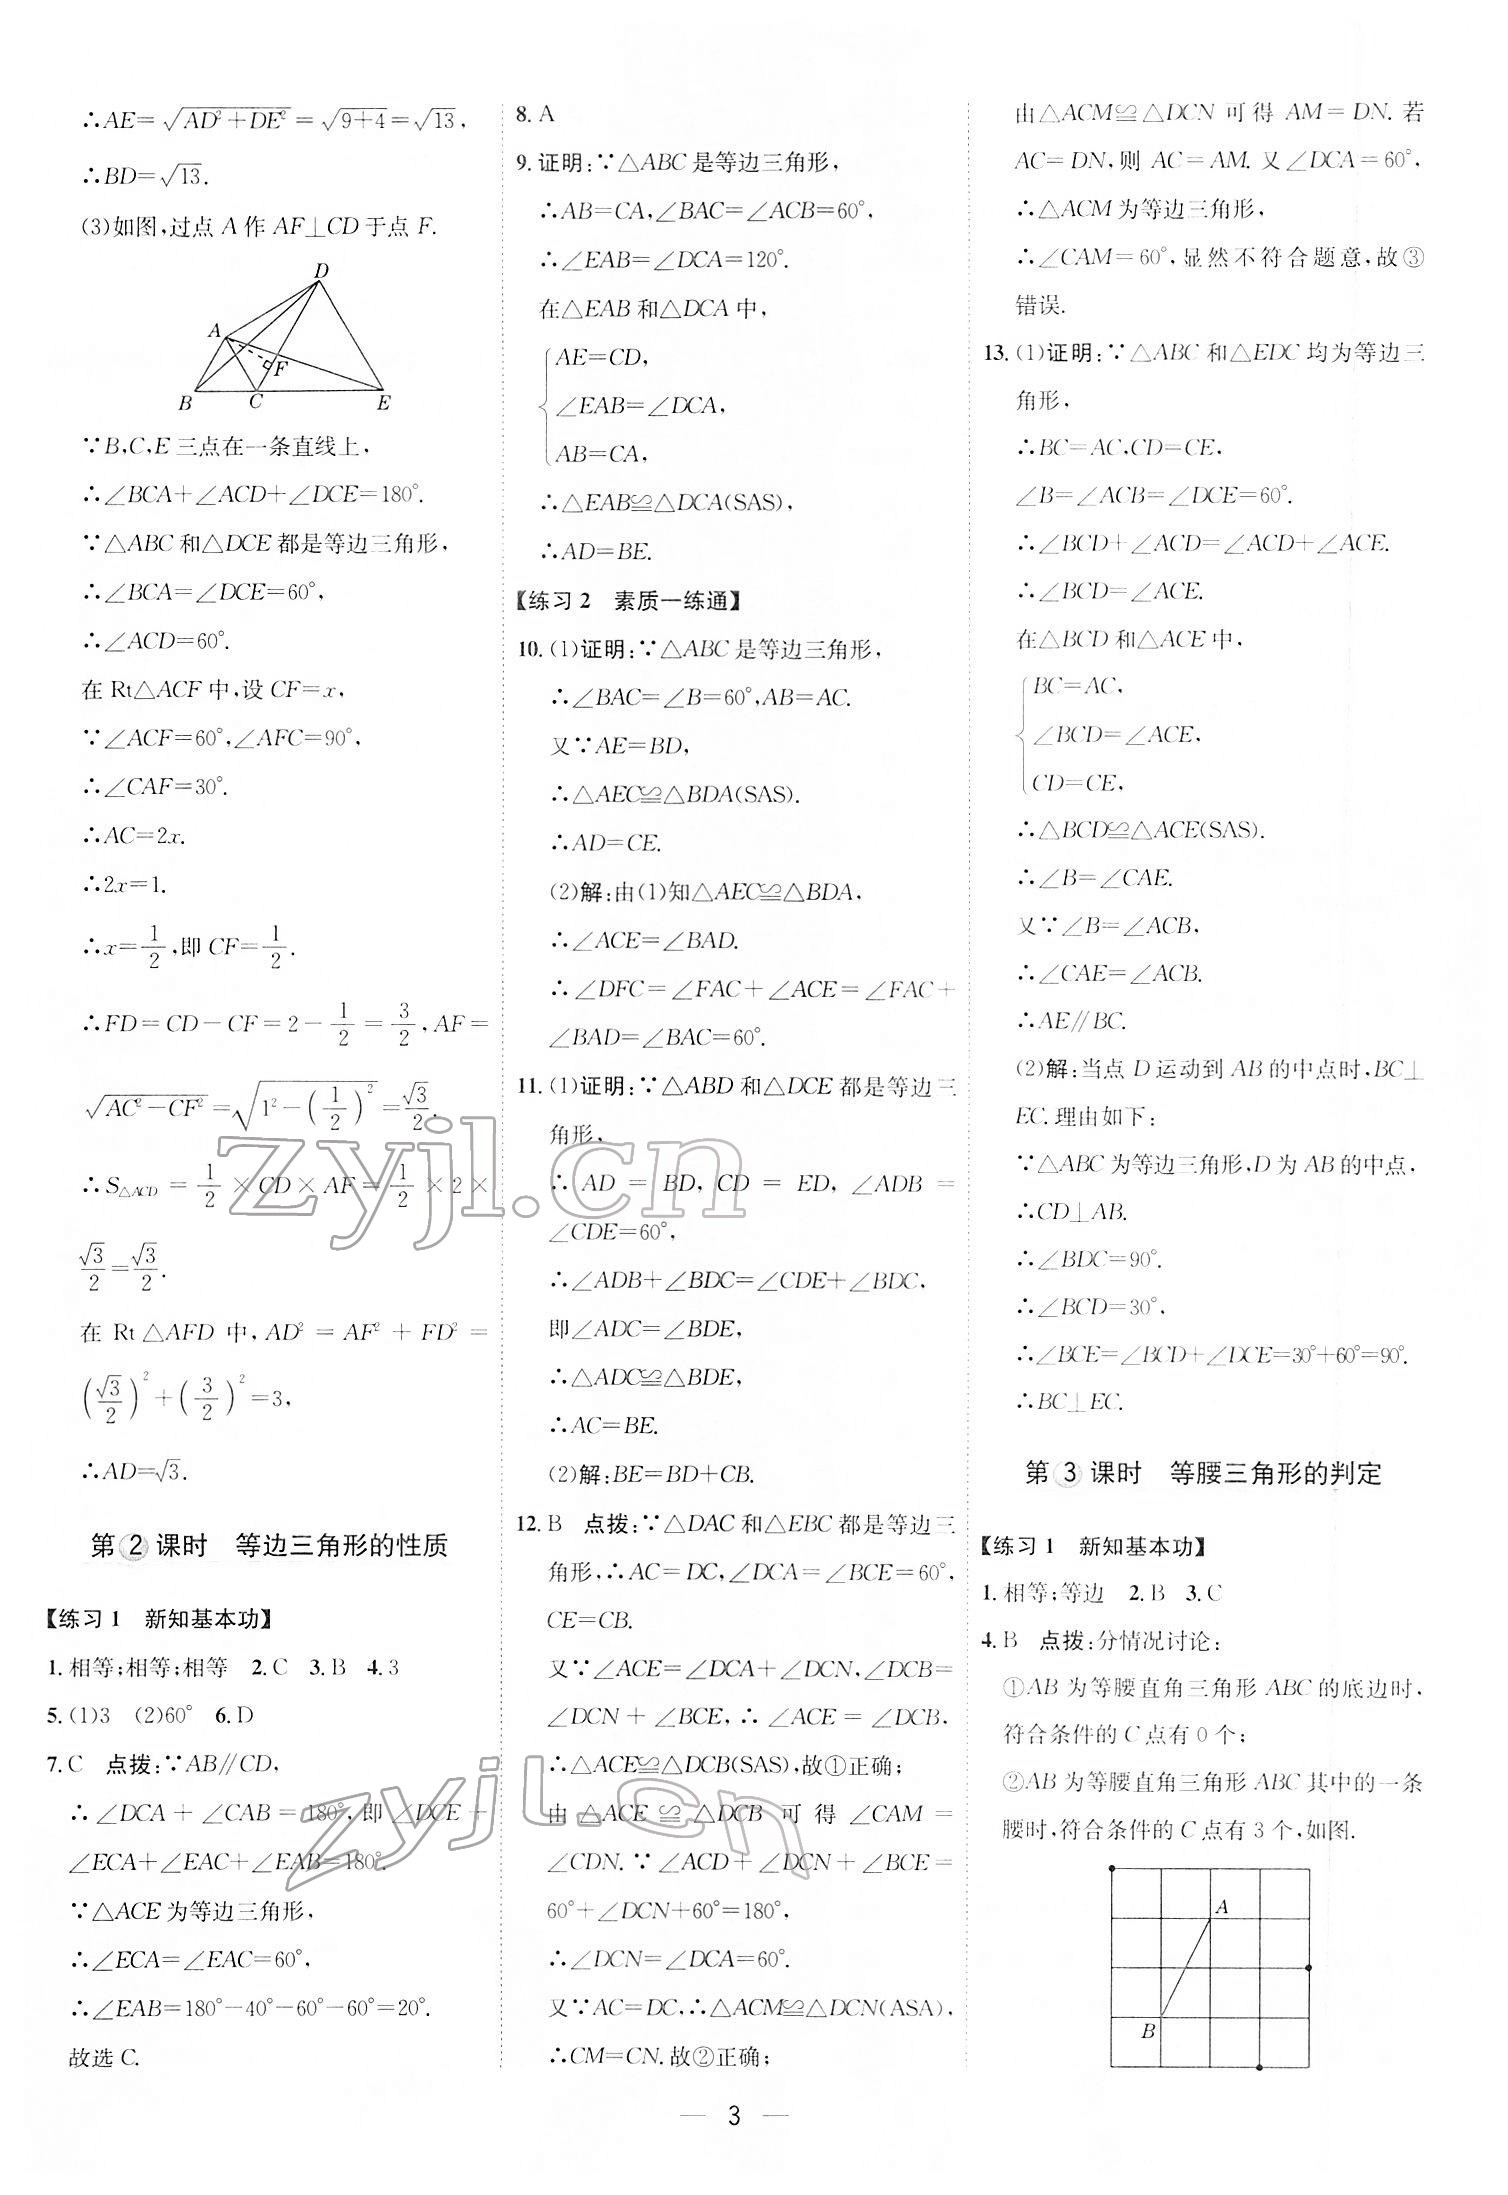 ∴AE=√(AD²+DE²)=√(9+4)=√13,
∴BD=√13.
(3)如图,过点 A 作 AF⊥CD 于点 F.
D
A
F
B C E
∵B,C,E 三点在一条直线上,
∴∠BCA+∠ACD+∠DCE=180°.
∵△ABC 和△DCE 都是等边三角形,
∴∠BCA=∠DCE=60°,
∴∠ACD=60°.
在 Rt△ACF 中,设 CF=x,
∵∠ACF=60°,∠AFC=90°,
∴∠CAF=30°.
∴AC=2x.
∴2x=1.
∴x=1/2,即 CF=1/2.
∴FD=CD-CF=2-1/2=3/2,AF=
√(AC²-CF²)=√(1²-(1/2)²)=√3/2.
∴S△ACD=1/2×CD×AF=1/2×2×
√3/2=√3/2.
在 Rt△AFD 中,AD²=AF²+FD²=
(√3/2)²+(3/2)²=3,
∴AD=√3.
第2课时 等边三角形的性质
【练习1 新知基本功】
1.相等;相等;相等 2.C 3.B 4.3
5.(1)3 (2)60° 6.D
7.C 点拨:∵AB∥CD,
∴∠DCA+∠CAB=180°,即∠DCE+
∠ECA+∠EAC+∠EAB=180°.
∵△ACE 为等边三角形,
∴∠ECA=∠EAC=60°,
∴∠EAB=180°-40°-60°-60°=20°.
故选 C.
8.A
9.证明:∵△ABC 是等边三角形,
∴AB=CA,∠BAC=∠ACB=60°,
∴∠EAB=∠DCA=120°.
在△EAB 和△DCA 中,
AE=CD,
∠EAB=∠DCA,
AB=CA,
∴△EAB≌△DCA(SAS),
∴AD=BE.
【练习2 素质一练通】
10.(1)证明:∵△ABC 是等边三角形,
∴∠BAC=∠B=60°,AB=AC.
又∵AE=BD,
∴△AEC≌△BDA(SAS).
∴AD=CE.
(2)解:由(1)知△AEC≌△BDA,
∴∠ACE=∠BAD.
∴∠DFC=∠FAC+∠ACE=∠FAC+
∠BAD=∠BAC=60°.
11.(1)证明:∵△ABD 和△DCE 都是等边三
角形,
∴AD=BD,CD=ED,∠ADB=
∠CDE=60°,
∴∠ADB+∠BDC=∠CDE+∠BDC,
即∠ADC=∠BDE,
∴△ADC≌△BDE,
∴AC=BE.
(2)解:BE=BD+CB.
12.B 点拨:∵△DAC 和△EBC 都是等边三
角形,∴AC=DC,∠DCA=∠BCE=60°,
CE=CB.
又∵∠ACE=∠DCA+∠DCN,∠DCB=
∠DCN+∠BCE,∴∠ACE=∠DCB.
∴△ACE≌△DCB(SAS),故①正确;
由△ACE≌△DCB 可得∠CAM=
∠CDN.∵∠ACD+∠DCN+∠BCE=
60°+∠DCN+60°=180°,
∴∠DCN=∠DCA=60°.
又∵AC=DC,∴△ACM≌△DCN(ASA),
∴CM=CN.故②正确;
由△ACM≌△DCN 可得 AM=DN.若
AC=DN,则 AC=AM.又∠DCA=60°,
∴△ACM 为等边三角形,
∴∠CAM=60°,显然不符合题意,故③
错误.
13.(1)证明:∵△ABC 和△EDC 均为等边三
角形,
∴BC=AC,CD=CE,
∠B=∠ACB=∠DCE=60°.
∴∠BCD+∠ACD=∠ACD+∠ACE.
∴∠BCD=∠ACE.
在△BCD 和△ACE 中,
BC=AC,
∠BCD=∠ACE,
CD=CE,
∴△BCD≌△ACE(SAS).
∴∠B=∠CAE.
又∵∠B=∠ACB,
∴∠CAE=∠ACB.
∴AE∥BC.
(2)解:当点 D 运动到 AB 的中点时,BC⊥
EC.理由如下:
∵△ABC 为等边三角形,D 为 AB 的中点,
∴CD⊥AB.
∴∠BDC=90°.
∴∠BCD=30°,
∴∠BCE=∠BCD+∠DCE=30°+60°=90°.
∴BC⊥EC.
第3课时 等腰三角形的判定
【练习1 新知基本功】
1.相等;等边 2.B 3.C
4.B 点拨:分情况讨论:
①AB 为等腰直角三角形 ABC 的底边时,
符合条件的 C 点有 0 个;
②AB 为等腰直角三角形 ABC 其中的一条
腰时,符合条件的 C 点有 3 个,如图.
A
B
— 3 —
zyjl.cn
zyjl.cn